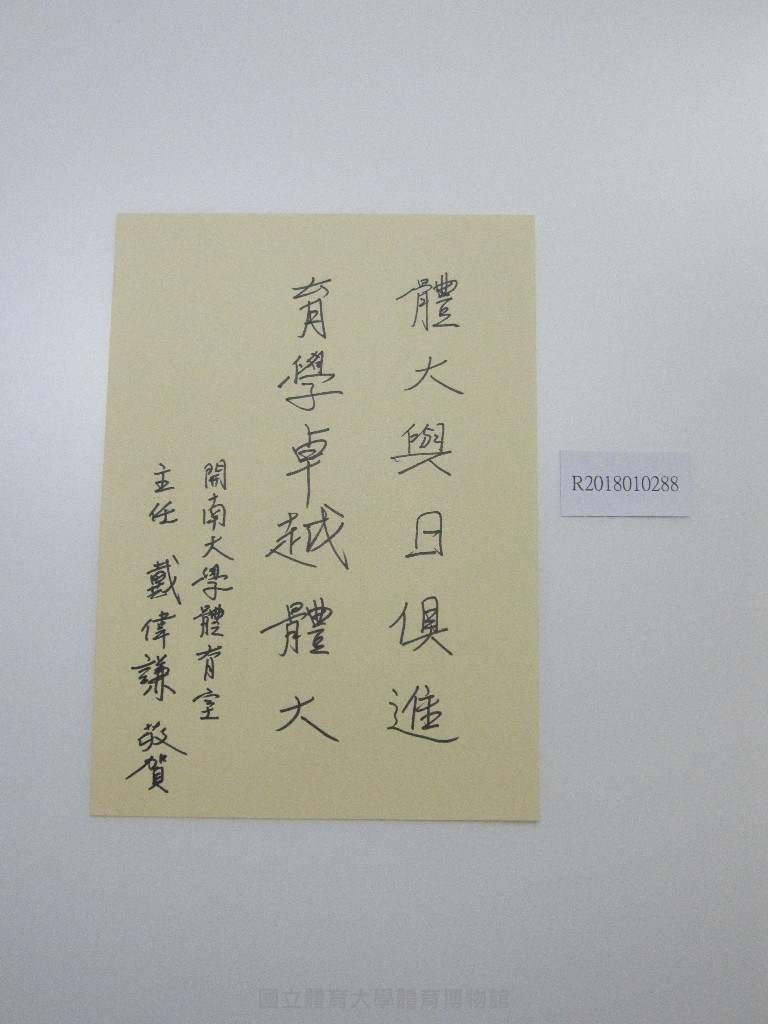 體大與日俱進
育學卓越體大
開南大學體育室
主任 戴偉謙 敬賀
R2018010288
國立體育大學體育博物館